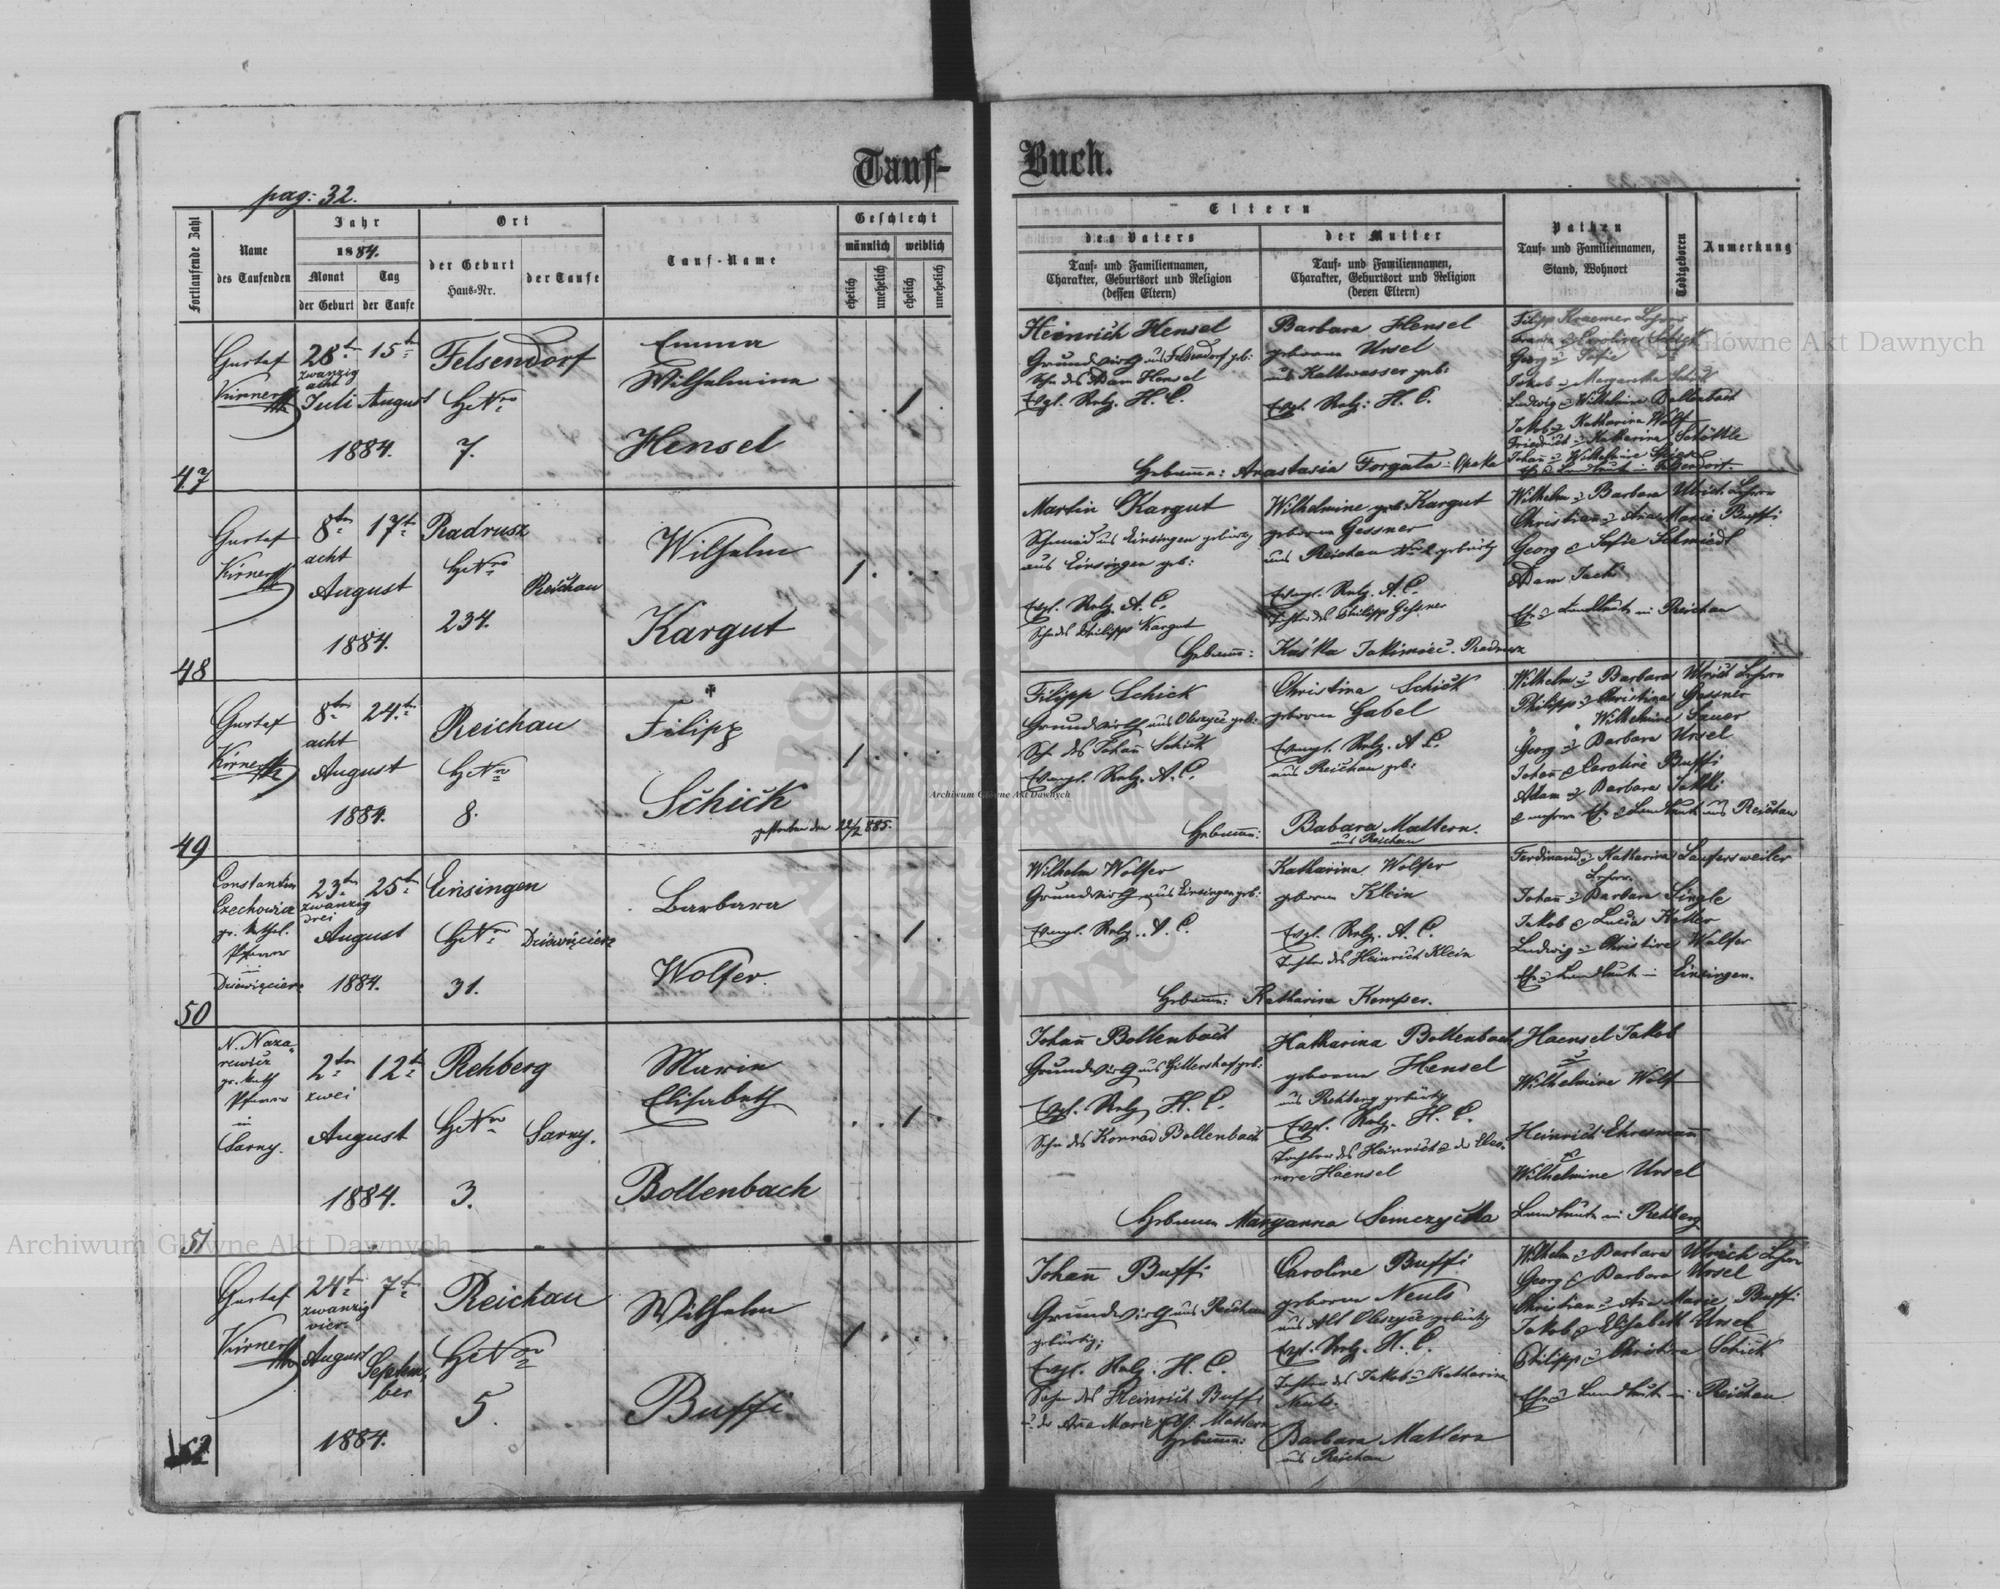 Tauf-
Buch.
pag: 32.
Fortlaufende Zahl
Name
des Taufenden
Jahr
1884.
Monat
Tag
der Geburt
der Taufe
Ort
der Geburt
Haus-Nr.
der Taufe
Tauf-Name
Geschlecht
männlich
weiblich
ehelich
unehelich
ehelich
unehelich
Eltern
des Vaters
Tauf- und Familiennamen,
Charakter, Geburtsort und Religion
(dessen Eltern)
der Mutter
Tauf- und Familiennamen,
Charakter, Geburtsort und Religion
(deren Eltern)
Pathen
Tauf- und Familiennamen,
Stand, Wohnort
Todtgeboren
Anmerkung
47
Gustaf
28t 15t
zwanzig
acht
Juli August
1884.
Felsendorf
HNro
7.
Emma
Wilhelmine
Hensel
1
Heinrich Hensel
Grundwirth aus Felsendorf geb:
Sohn des Adam Hensel
Evgl. Relg. H. C.
Barbara Hensel
geborne Ursel
aus Kaltwasser geb:
Evgl. Relg: H. C.
Filipp Kraemer Lehrer
Georg & Sofie
Jakob & Margaretha
Ludwig & Wilhelmine Bollenbach
Jakob & Katharina Wolf
Friedrich & Katharina Schöttle
Johann & Wilhelmine
Hebamme: Anastasia Forgata - Opaka
48
Gustaf
8ten 17t
acht
August
1884.
Radrusz
HNro
234.
Reichau
Wilhelm
Kargut
1
Martin Kargut
Schmied aus Einsingen gebürtig
aus Einsingen geb:
Evgl. Relg. A. C.
Sohn des Philipp Kargut
Wilhelmine geb. Kargut
geborne Gessner
aus Reichau gebürtig
Evangl. Relg. A. C.
Tochter des Philipp Gessner
Hebamme: Kaśka Jakimiec. Radrusz
Wilhelm & Barbara Ulrich Lehrer
Christian & Anna Marie Buffi
Georg & Sofie Schmiedt
Adam Jaeki
Ehe & Landleute in Reichau
49
Gustaf
8ten 24t
acht
August
1884.
Reichau
HNro
8.
Filipp
Schick
gestorben den 22/2 885.
1
Filipp Schick
Grundwirth aus Oleszyce geb:
Sohn des Johann Schick
Evangl. Relg. A. C.
Christina Schick
geborne Gabel
Evangl. Relg. A C.
aus Reichau geb:
Hebamme: Babara Mattern.
aus Reichau
Wilhelm & Barbara Ulrich Lehrer
Philipp & Christina Gessner
" " Wilhelmine Sauer
Georg & Barbara Ursel
Johann & Caroline Buffi
Adam & Barbara Jakki
& mehrere Ehe & Landleute aus Reichau
50
Constantin
Czechowicz
gr. kathol.
Pfarrer
in
23ten 25t
zwanzig
drei
August
1884.
Einsingen
HNro
31.
Barbara
Wolfer.
1
Wilhelm Wolfer
Grundwirth aus Einsingen geb:
Evangl. Relg. A. C.
Katharina Wolfer
geborne Klein
Evgl. Relg. A. C.
Tochter des Heinrich Klein
Hebamme: Katharina Kemper.
Ferdinand & Katharina Laufersweiler
Lehrer.
Johann & Barbara Single
Jakob & Lucia Keller
Ludwig & Christine Wolfer
Ehe & Landleute in Einsingen.
51
N. Naza-
rewicz
gr. kath
Pfarrer
in
Sarny.
2ten 12t
zwei
August
1884.
Rehberg
HNro
3.
Sarny.
Marie
Elisabeth
Bollenbach
1
Johann Bollenbach
Grundwirth aus Gillershof geb:
Evgl. Relg H. C.
Sohn des Konrad Bollenbach
Katharina Bollenbach
geborne Hensel
aus Rehberg gebürtig
Evgl. Relg. H. C.
Tochter des Heinrich & der Eleo-
nore Haensel
Hebamme Maryanna
Haensel Jakob
&
Wilhelmine Wolf
Heinrich Ehresmann
&
Wilhelmine Ursel
Landleute in Rehberg
52
Gustaf
24t 7t
zwanzig
vier
August
Septem-
ber
1884.
Reichau
HNro
5.
Wilhelm
Buffi
1
Johann Buffi
Grundwirth aus Reichau
gebürtig;
Evgl. Relg. H. C.
Sohn des Heinrich Buffi
& der Anna Marie geb: Mattern
Caroline Buffi
geborne Neuls
aus Alt Oleszyce gebürtig
Evgl. Relg. H. C.
Tochter des Jakob & Katharina
Neuls.
Hebamme: Barbara Mattern
aus Reichau
Wilhelm & Barbara Ulrich Lehrer
Georg & Barbara Ursel
Christian & Anna Marie Buffi
Jakob & Elisabeth Ursel
Philipp & Christina Schick
Ehe & Landleute in Reichau
Archiwum Główne Akt Dawnych
Główne Akt Dawnych
Archiwum Główne Akt Dawnych